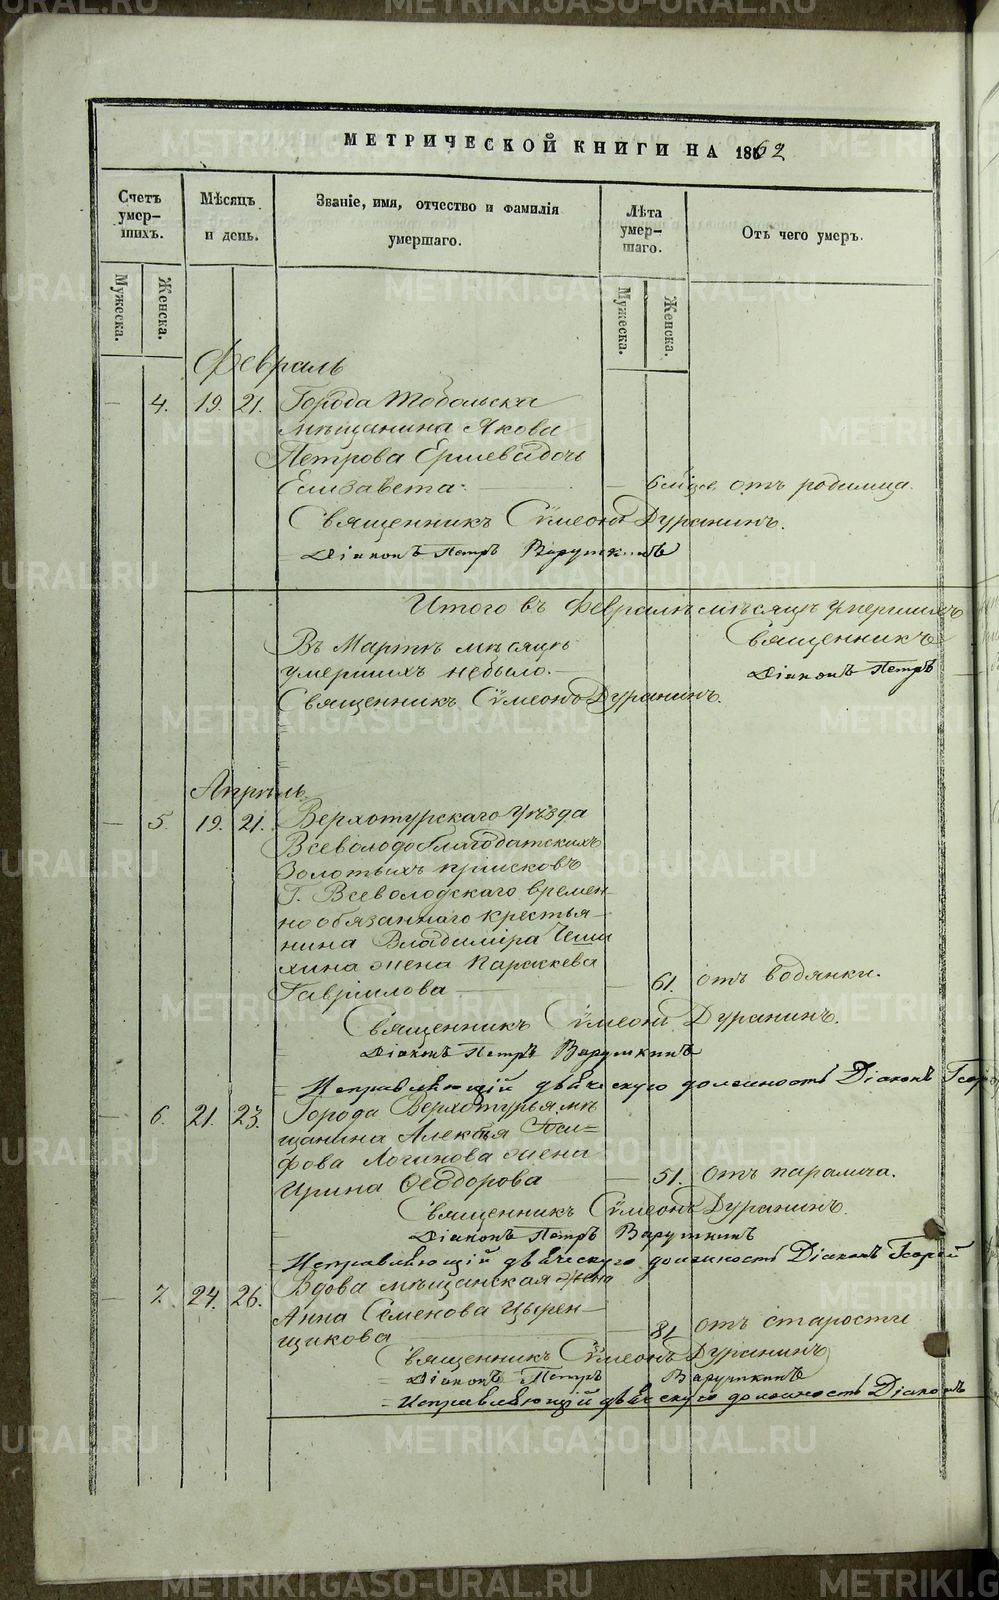 МЕТРИЧЕСКОЙ КНИГИ НА 1862
Счетъ умер-шихъ.
Мѣсяцъ и день.
Званіе, имя, отчество и фамилія умершаго.
Лѣта умер-шаго.
Отъ чего умеръ.
Мужеска.
Женска.
Мужеска.
Женска.
Февраль
4. 19. 21. Города Тобольска
мѣщанина Якова
Петрова дочь
Елизавета. 6 отъ родимца.
Священникъ Сѵмеонъ Дуранинъ.
Діаконъ Петръ Варушкинъ
Итого въ Февралѣ мѣсяцѣ умершихъ
Священникъ
Въ Мартѣ мѣсяцѣ
умершихъ небыло.
Діаконъ Петръ
Священникъ Сѵмеонъ Дуранинъ.
Апрѣль
5. 19. 21. Верхотурскаго Уѣзда
Всеволодоблагодатскихъ
Золотыхъ пріисковъ
Г. Всеволодскаго времен-
но обязаннаго крестья-
нина Владиміра
жена Параскева
Гавріилова 61. отъ водянки.
Священникъ Сѵмеонъ Дуранинъ.
Діаконъ Петръ Варушкинъ
Исправляющій дьяческую должность Діаконъ
6. 21. 23. Города Верхотурья мѣ-
щанина Алексѣя
Логинова жена
Ирина Феодорова 51. отъ паралича.
Священникъ Сѵмеонъ Дуранинъ.
Діаконъ Петръ Варушкинъ
Исправляющій дьяческую должность Діаконъ
7. 24. 26. Вдова мѣщанская жена
Анна Семенова
81. отъ старости
Священникъ Сѵмеонъ Дуранинъ
Діаконъ Петръ Варушкинъ
Исправляющій дьяческую должность Діаконъ
METRIKI.GASO-URAL.RU